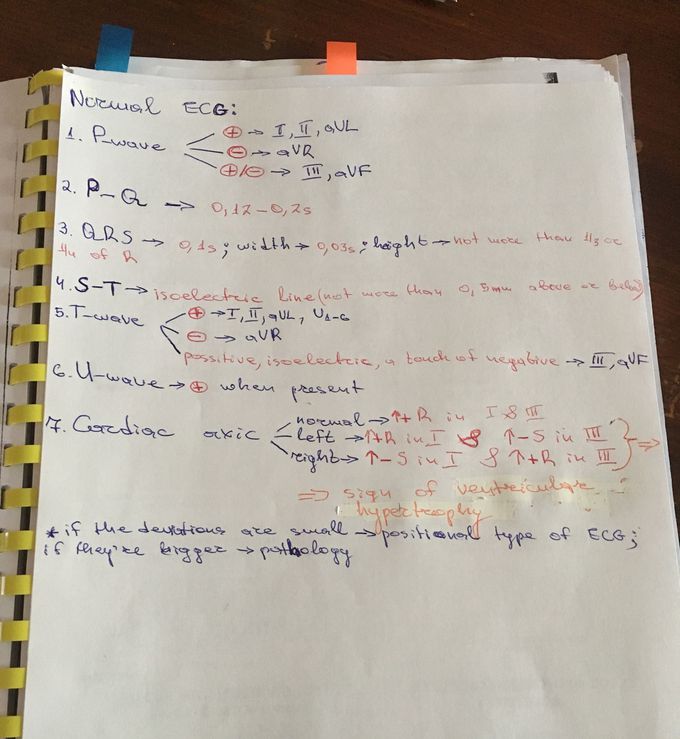 Normal ECG:
1. P-wave
⊕ → I, II, aVL
⊖ → aVR
⊕/⊖ → III, aVF
2. P-Q → 0,12-0,2s
3. QRS → 0,1s; width → 0,03s; height → not more than 1/3 or
1/4 of R
4. S-T → isoelectric line (not more than 0,5mm above or below)
5. T-wave
⊕ → I, II, aVL, V1-6
⊖ → aVR
possitive, isoelectric, a touch of negative → III, aVF
6. U-wave → ⊕ when present
7. Cardiac axic
normal → ↑+R in I & III
left → ↑+R in I & ↑-S in III
right → ↑-S in I & ↑+R in III } ⇒
⇒ sign of ventricular
hypertrophy
* if the deviations are small → positional type of ECG;
if they're bigger → pathology